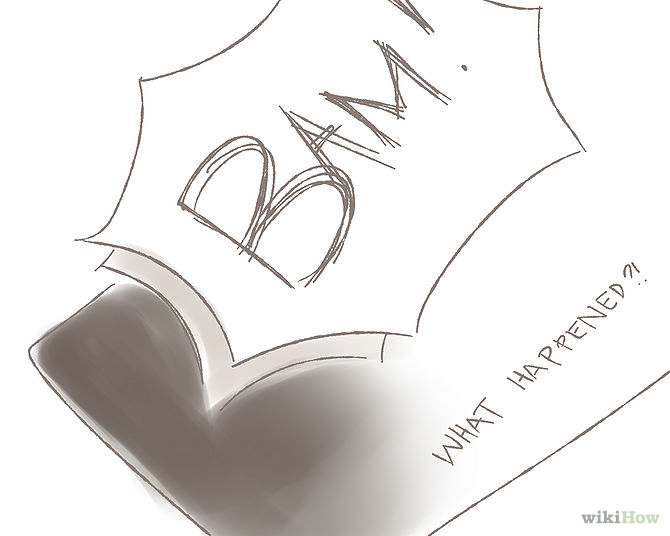 BAM!
WHAT HAPPENED?!
wikiHow